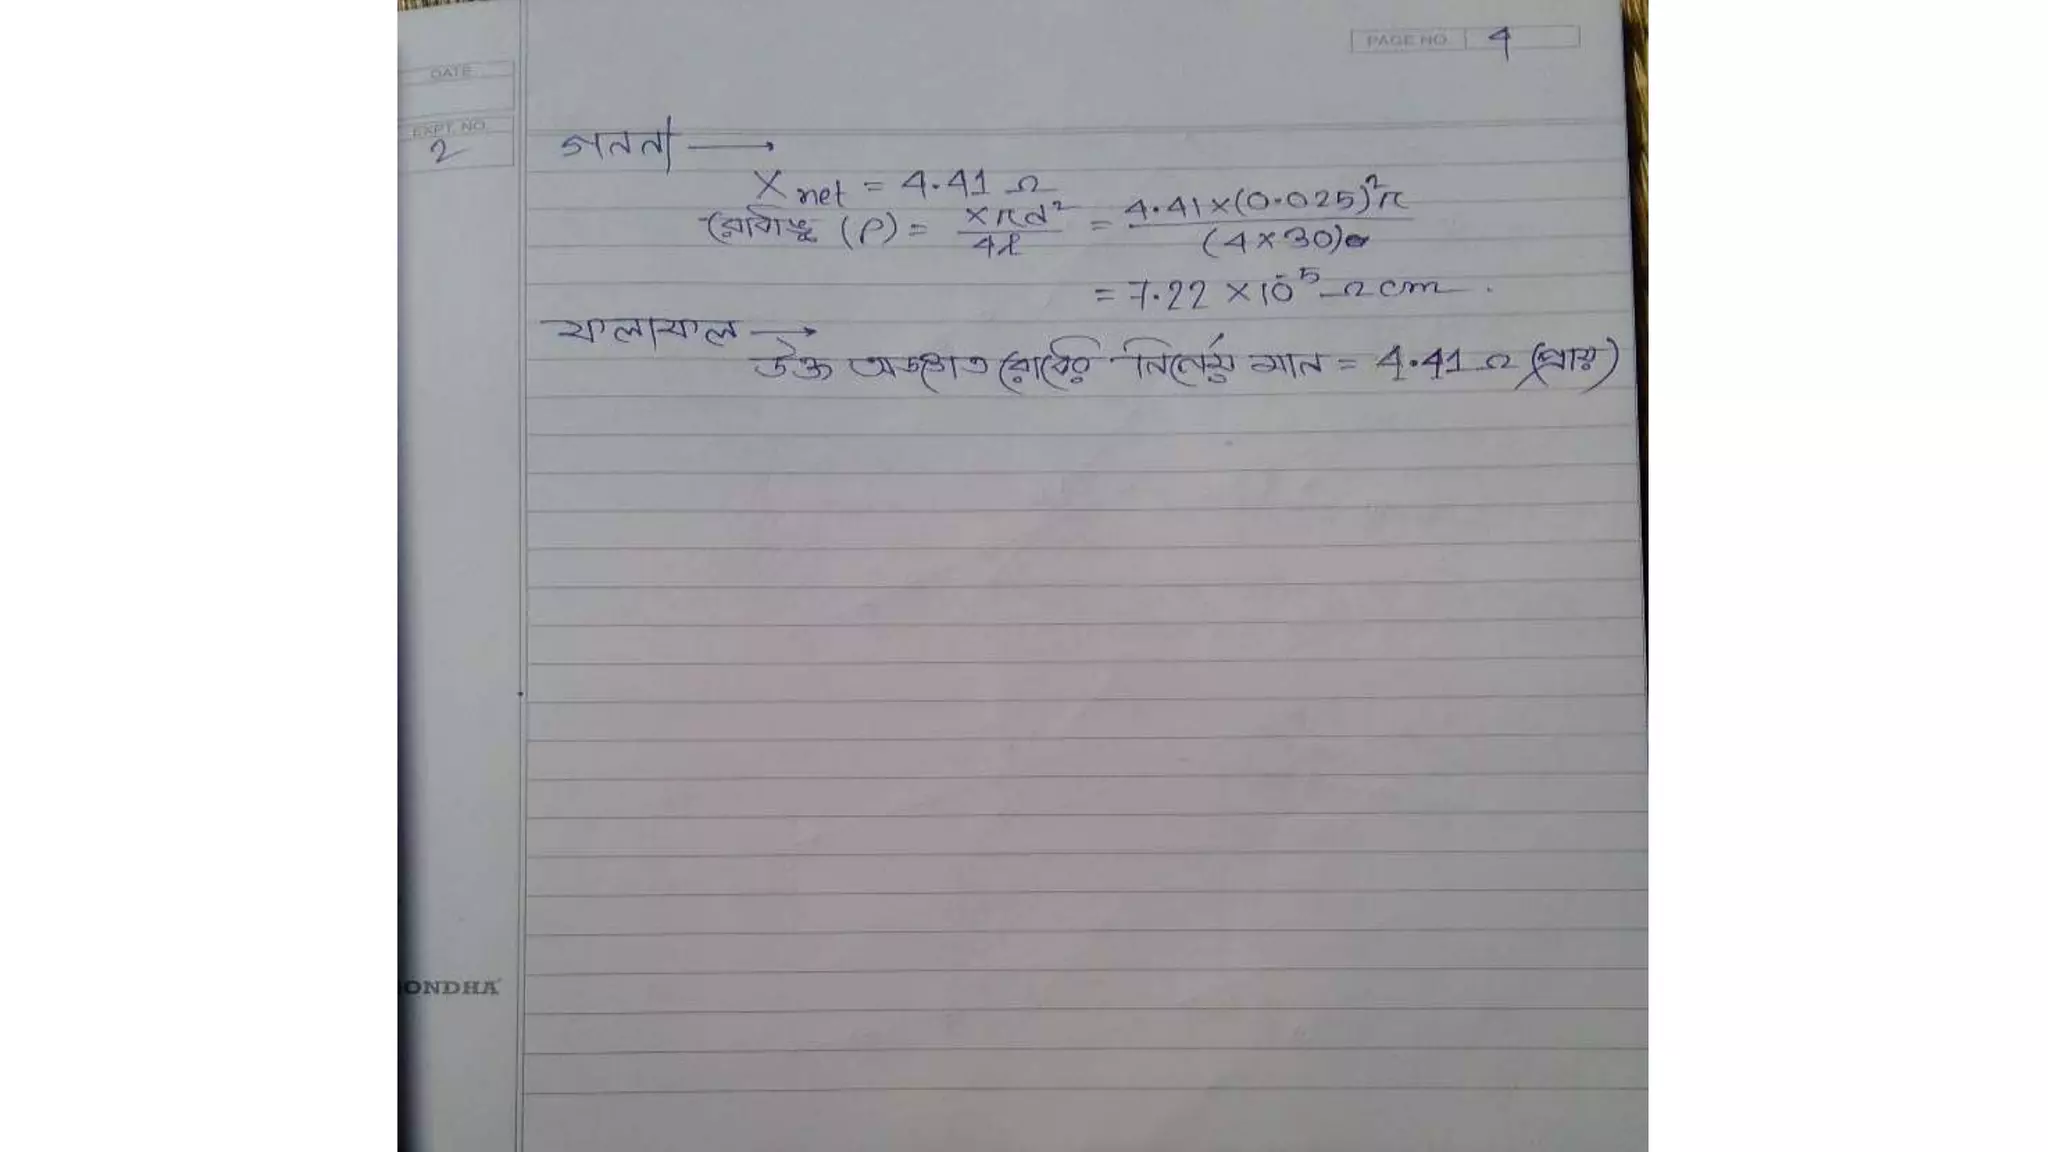 PAGE NO 4
DATE
EXPT. NO.
2
গননা →
X net = 4.41 Ω
রোধাঙ্ক (ρ) = Xπd²/4l = 4.41×(0.025)²π/(4×30)
= 7.22 × 10⁻⁵ Ω cm .
ফলাফল →
উক্ত অজ্ঞাত রোধের নির্নেয় মান = 4.41 Ω (প্রায়)
ONDHA